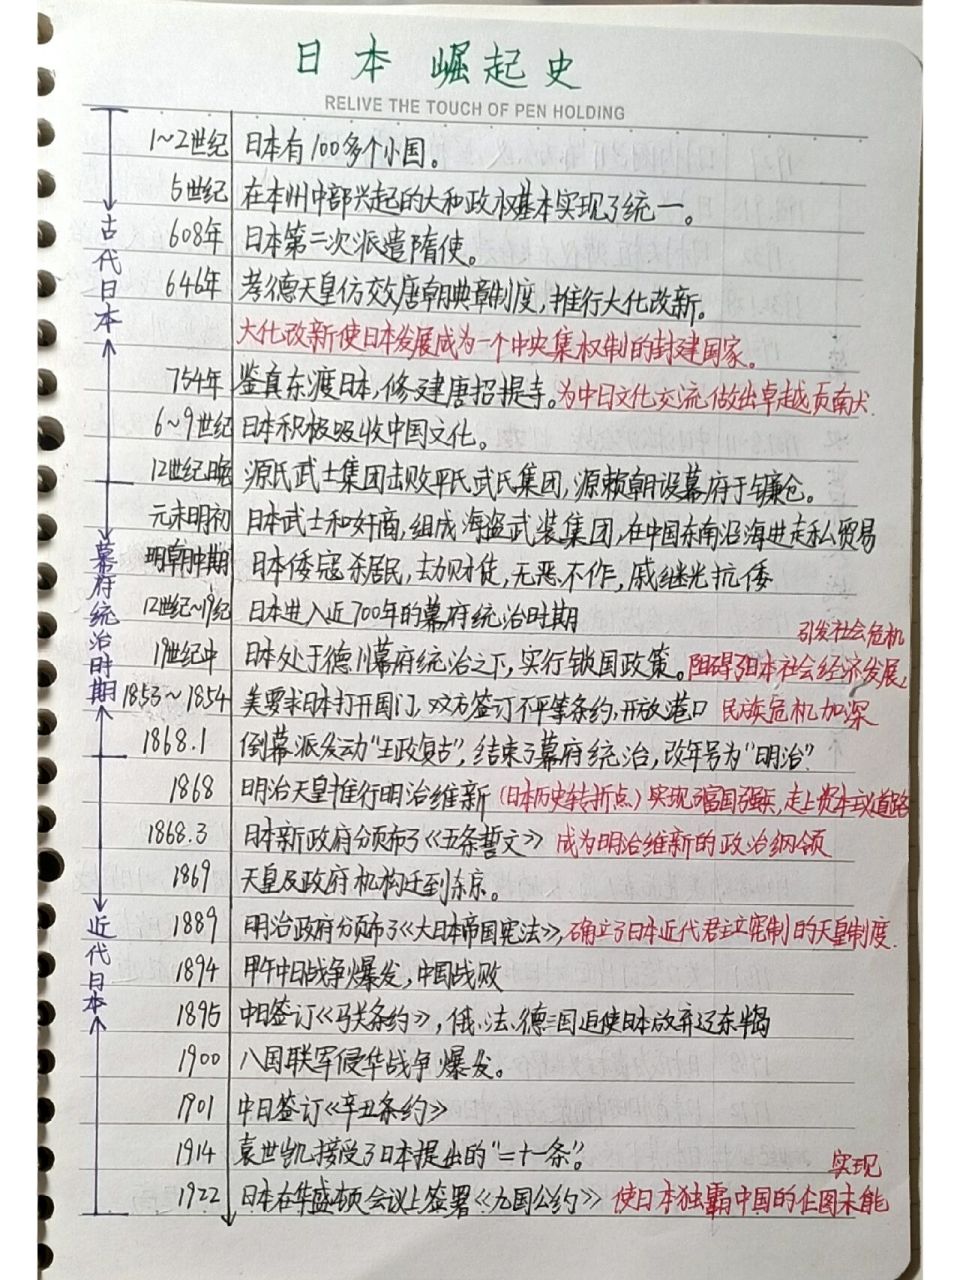 日本 崛起史
RELIVE THE TOUCH OF PEN HOLDING
1~2世纪 日本有100多个小国。
5世纪 在本州中部兴起的大和政权基本实现了统一。
608年 日本第二次派遣隋使。
646年 孝德天皇仿效唐朝典章制度，推行大化改新。
大化改新使日本发展成为一个中央集权制的封建国家。
754年 鉴真东渡日本，修建唐招提寺。为中日文化交流做出卓越贡献
6~9世纪 日本积极吸收中国文化。
12世纪晚 源氏武士集团击败平氏武氏集团，源赖朝设幕府于镰仓。
元末明初 日本武士和奸商，组成海盗武装集团，在中国东南沿海进走私贸易
明朝中期 日本倭寇杀居民，劫财货，无恶不作，戚继光抗倭
12世纪~19纪 日本进入近700年的幕府统治时期
引发社会危机
19世纪中 日本处于德川幕府统治之下，实行锁国政策。阻碍了日本社会经济发展，
1853~1854 美要求日本打开国门，双方签订不平等条约，开放港口 民族危机加深
1868.1 倒幕派发动“王政复古”，结束了幕府统治，改年号为“明治”。
1868 明治天皇推行明治维新（日本历史转折点）实现了富国强兵，走上资本主义道路
1868.3 日本新政府颁布了《五条誓文》 成为明治维新的政治纲领
1869 天皇及政府机构迁到东京。
1889 明治政府颁布了《大日本帝国宪法》，确立了日本近代君主立宪制的天皇制度.
1894 甲午中日战争爆发，中国战败
1895 中日签订《马关条约》，俄、法、德三国迫使日本放弃辽东半岛
1900 八国联军侵华战争爆发。
1901 中日签订《辛丑条约》
1914 袁世凯接受了日本提出的“二十一条”。
实现
1922 日本在华盛顿会议上签署《九国公约》 使日本独霸中国的企图未能
古代日本
幕府统治时期
近代日本